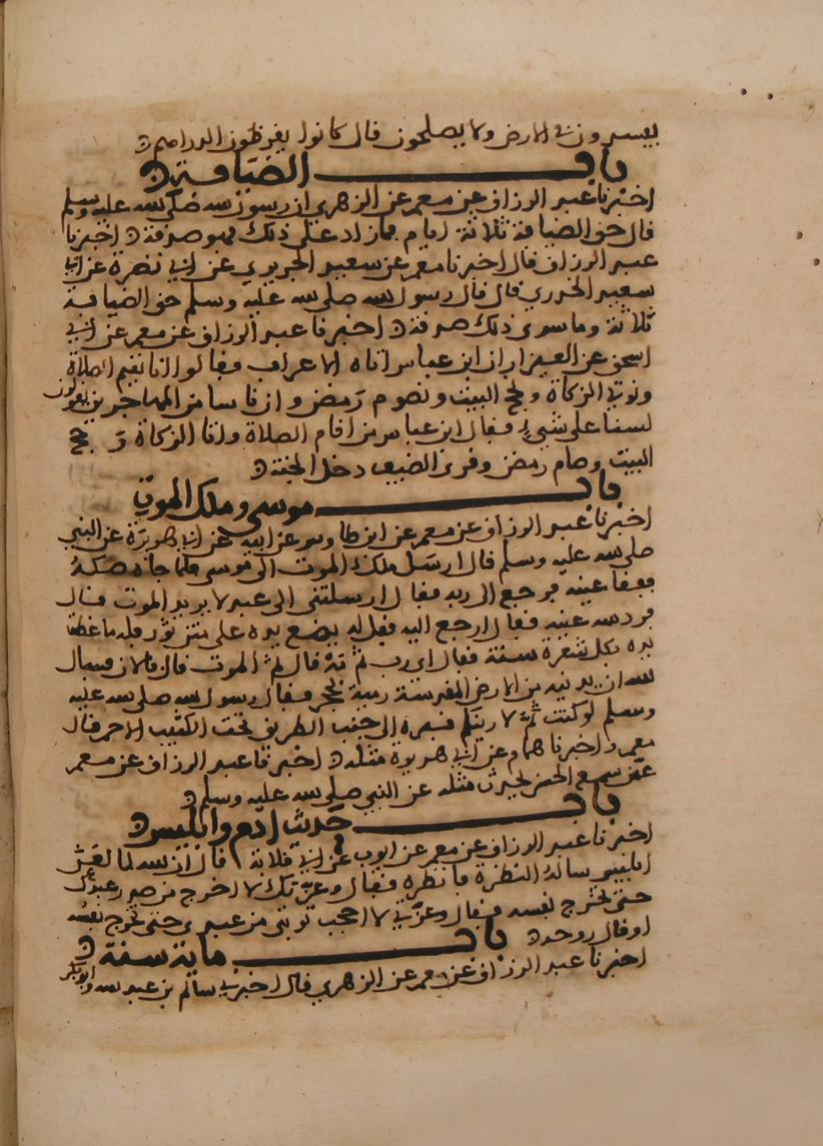 يفسدون في الارض ولا يصلحون قال كانوا يقرظون الدراهم
باب الضيافة
اخبرنا عبد الرزاق عن معمر عن الزهري ان رسول الله صلى الله عليه وسلم
قال حق الضيافة ثلاثة ايام فما زاد على ذلك فهو صدقة اخبرنا
عبد الرزاق قال اخبرنا معمر عن سعيد الجريري عن ابي نضرة عن ابي
سعيد الخدري قال قال رسول الله صلى الله عليه وسلم حق الضيافة
ثلاثة وما سوى ذلك صدقة اخبرنا عبد الرزاق عن معمر عن ابي
اسحق عن العيزار ان ابن عباس اتاه الاعراب فقالوا انا نقيم الصلاة
ونوتي الزكاة ونحج البيت ونصوم رمضن وان ناسا من المهاجرين يقولون
لسنا على شيء فقال ابن عباس من اقام الصلاة واتا الزكاة و حج
البيت وصام رمضن وقرى الضيف دخل الجنة
باب موسى وملك الموت
اخبرنا عبد الرزاق عن معمر عن ابن طاوس عن ابيه عن ابي هريرة عن النبي
صلى الله عليه وسلم قال ارسل ملك الموت الى موسى فلما جاه صكه
ففقا عينه فرجع الى ربه فقال ارسلتني الى عبد لا يريد الموت قال
فرد الله عينه فقال ارجع اليه فقل له يضع يده على متن ثور فله ما غطت
يده بكل شعرة سنة فقال اي رب ثم مه قال ثم الموت قال فالان فسال
الله ان يدنيه من الارض المقدسة رمية بحجر فقال رسول الله صلى الله عليه
وسلم لو كنت ثم لاريتكم قبره الى جنب الطريق تحت الكثيب الاحمر قال
معمر واخبرنا همام عن ابي هريرة مثله اخبرنا عبد الرزاق عن معمر
عمن سمع الحسن يحدث مثله عن النبي صلى الله عليه وسلم
باب حديث ادم وابليس
اخبرنا عبد الرزاق عن معمر عن ايوب عن ابي قلابة قال ان الله لما لعن
ابليس ساله النظرة فانظره فقال وعزتك لا اخرج من صدر عبدك
حتى تخرج نفسه فقال وعزتي لا احجب توبتي من عبدي حتى تخرج نفسه
او قال روحه باب ماية سنة
اخبرنا عبد الرزاق عن معمر عن الزهري قال اخبرني سالم بن عبد الله وابو بكر